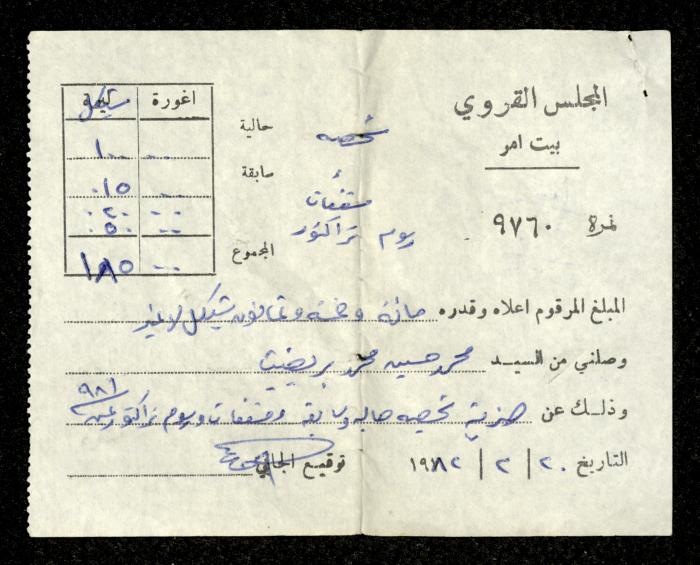 المجلس القروي
بيت امر
نمرة ٩٧٦٠
اغورة شيكل
حالية شخصية
٠٠ ١٠٠
سابقة
٠٠ ٠١٥ مسقفات
٠٠ ٠٢٠ رسوم تراكتور
٠٠ ٠٥٠
المجموع
٠٠ ١٨٥
المبلغ المرقوم اعلاه وقدره مائة وخمسة وثمانون شيكل لا غير
وصلني من السيد محمد حسين محمد بريغيث
وذلك عن ضريبة شخصية حالية وسابقة ومسقفات ورسوم تراكتور عن ٩٨١
التاريخ ٢٠ / ٢ / ١٩٨٢ توقيع الجابي